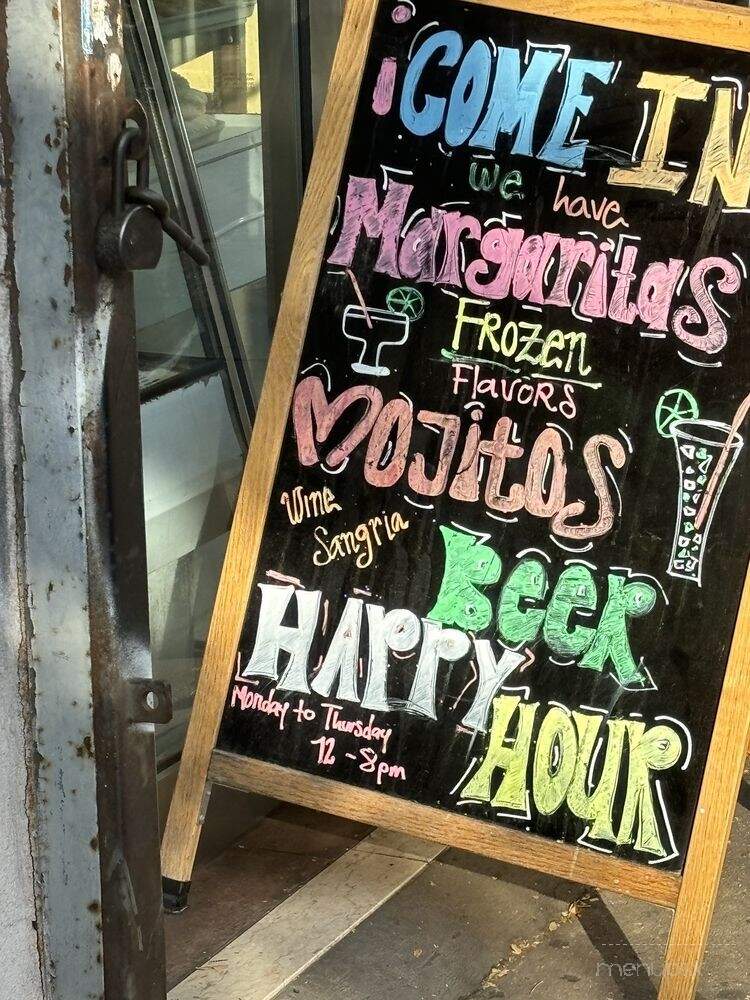 ¡COME IN
we have
Margaritas
Frozen
Flavors
Mojitos
Wine
Sangria
Beer
HAPPY
Monday to Thursday
12 - 8pm
HOUR
menupix